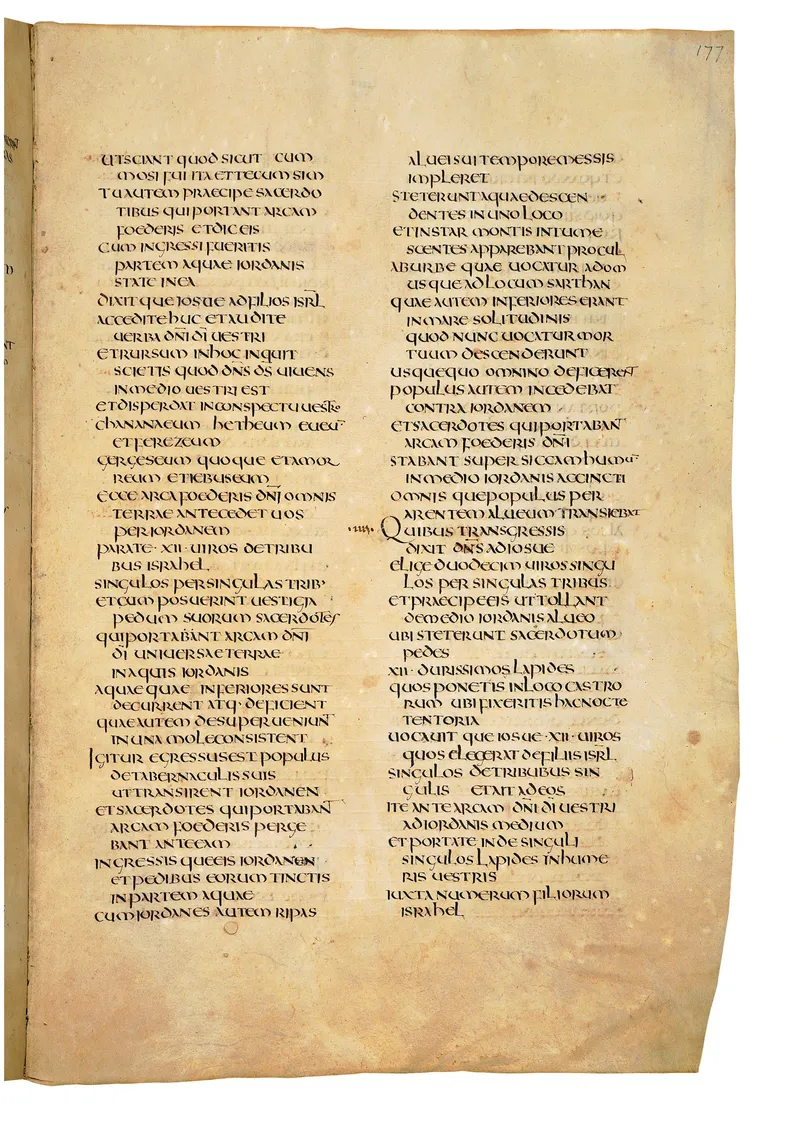 177
UTSCIANT QUOD SICUT CUM
MOSI FUI ITA ET TECUM SIM
TU AUTEM PRAECIPE SACERDO
TIBUS QUI PORTANT ARCAM
FOEDERIS ET DIC EIS
CUM INGRESSI FUERITIS
PARTEM AQUAE IORDANIS
STATE IN EA
DIXIT QUE IOSUE AD FILIOS ISRL̅
ACCEDITE HUC ET AUDITE
UERBA DN̅I DI̅ UESTRI
ET RURSUM IN HOC INQUIT
SCIETIS QUOD DN̅S DS̅ UIUENS
IN MEDIO UESTRI EST
ET DISPERDAT IN CONSPECTU UESTRO
CHANANAEUM HETHEUM EUEU̅
ET FEREZEUM
GERGESEUM QUOQUE ET AMOR
REUM ET IEBUSEUM
ECCE ARCA FOEDERIS DN̅I OMNIS
TERRAE ANTECEDET UOS
PER IORDANEM
PARATE · XII · UIROS DE TRIBU
BUS ISRAHEL
SINGULOS PER SINGULAS TRIB'
ET CUM POSUERINT UESTIGIA
PEDUM SUORUM SACERDOTES
QUI PORTABANT ARCAM DN̅I
DI̅ UNIUERSAE TERRAE
IN AQUIS IORDANIS
AQUAE QUAE INFERIORES SUNT
DECURRENT ATQ· DEFICIENT
QUAE AUTEM DESUPER UENIUN̅T
IN UNA MOLE CONSISTENT
IGITUR EGRESSUS EST POPULUS
DE TABERNACULIS SUIS
UT TRANSIRENT IORDANEN
ET SACERDOTES QUI PORTABAN̅T
ARCAM FOEDERIS PERGE
BANT ANTE EAM
INGRESSIS QUE EIS IORDANEN
ET PEDIBUS EORUM TINCTIS
IN PARTEM AQUAE
CUM IORDANES AUTEM RIPAS
ALUEI SUI TEMPORE MESSIS
IMPLERET
STETERUNT AQUAE DESCEN
DENTES IN UNO LOCO
ET INSTAR MONTIS INTUME
SCENTES APPAREBANT PROCUL
AB URBE QUAE UOCATUR ADOM
USQUE AD LOCUM SARTHAN
QUAE AUTEM INFERIORES ERANT
IN MARE SOLITUDINIS
QUOD NUNC UOCATUR MOR
TUUM DESCENDERUNT
USQUEQUO OMNINO DEFICERENT
POPULUS AUTEM INCEDEBAT
CONTRA IORDANEM
ET SACERDOTES QUI PORTABAN̅T
ARCAM FOEDERIS DN̅I
STABANT SUPER SICCAM HUMU̅
IN MEDIO IORDANIS ACCINCTI
OMNIS QUE POPULUS PER
ARENTEM ALUEUM TRANSIEBAT
·IIII· QUIBUS TRANSGRESSIS
DIXIT DN̅S AD IOSUE
ELIGE DUODECIM UIROS SINGU
LOS PER SINGULAS TRIBUS
ET PRAECIPE EIS UT TOLLANT
DE MEDIO IORDANIS ALUEO
UBI STETERUNT SACERDOTUM
PEDES
XII · DURISSIMOS LAPIDES
QUOS PONETIS IN LOCO CASTRO
RUM UBI FIXERITIS HAC NOCTE
TENTORIA
UOCAUIT QUE IOSUE · XII · UIROS
QUOS ELEGERAT DE FILIIS ISRL̅
SINGULOS DE TRIBUBUS SIN
GULIS ET AIT AD EOS
ITE ANTE ARCAM DN̅I DI̅ UESTRI
AD IORDANIS MEDIUM
ET PORTATE INDE SINGULI
SINGULOS LAPIDES IN HUME
RIS UESTRIS
IUXTA NUMERUM FILIORUM
ISRAHEL